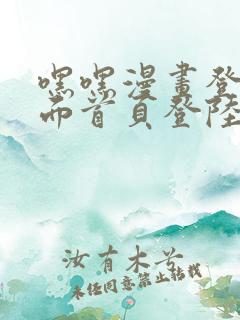 嘿嘿漫畫登
面首頁登陸
汝有木兮
未经同意禁止转载